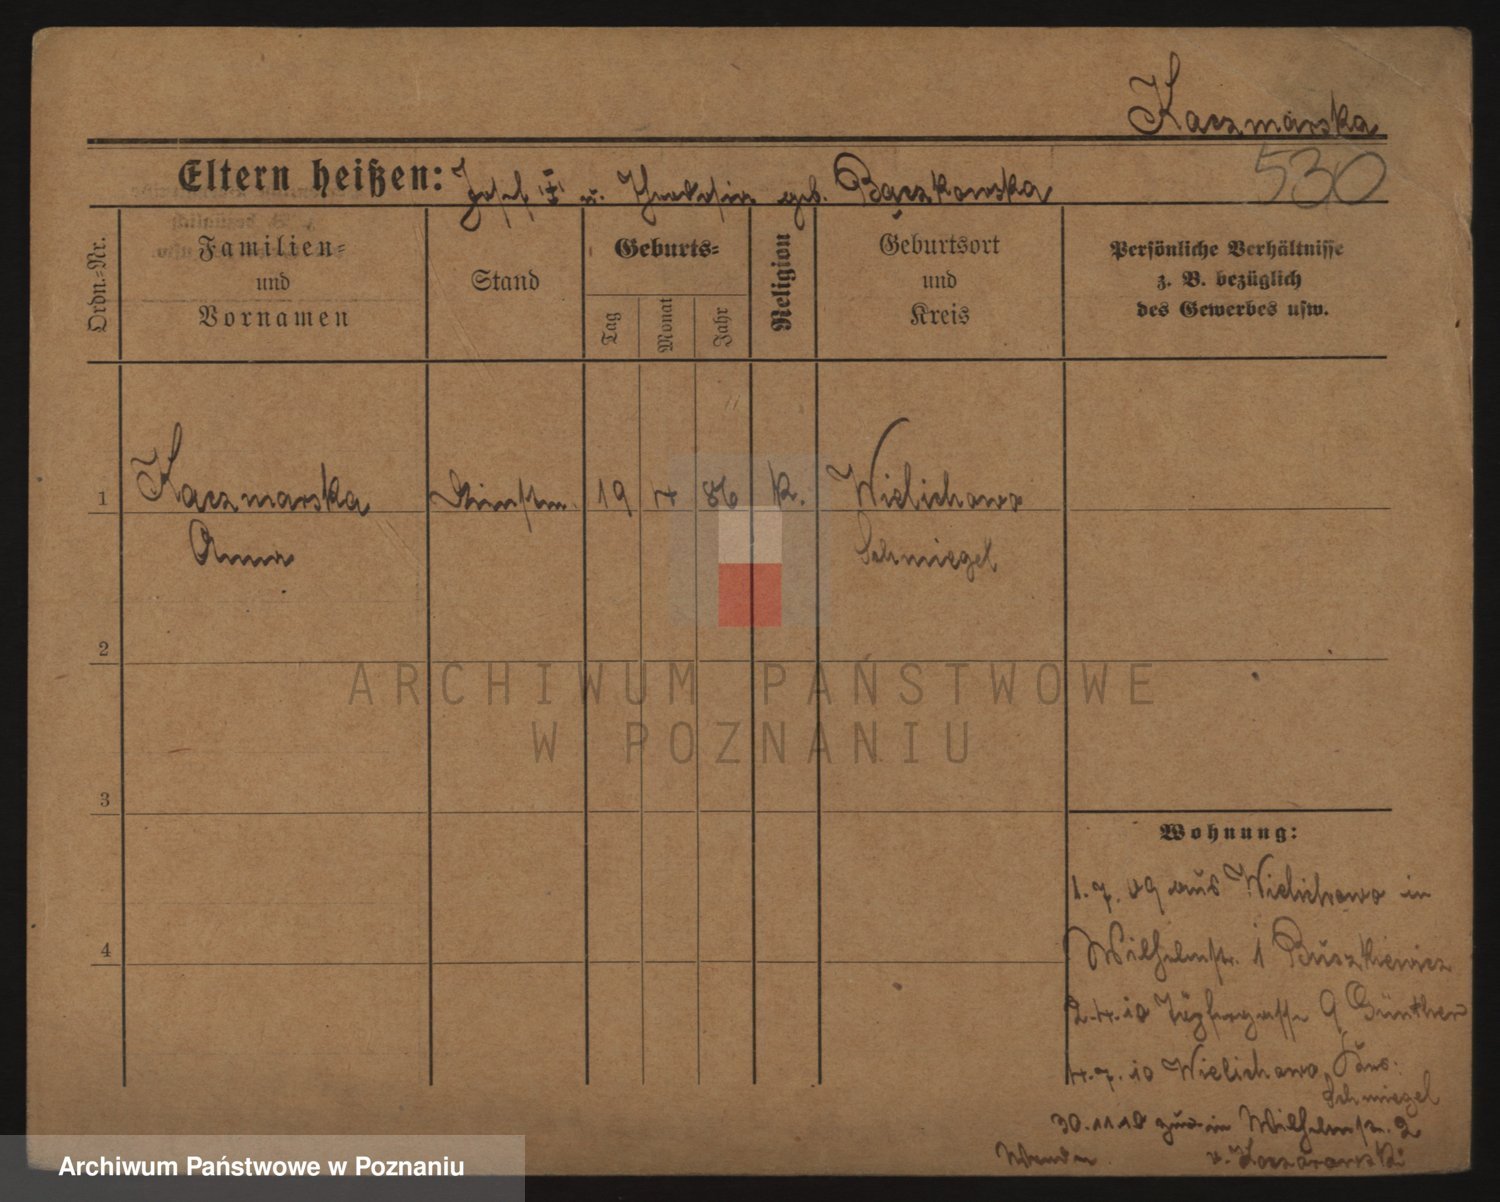 Kaczmarska
530
Eltern heißen: Josef u. geb. Bączkowska
Ordn.-Nr.
Familien-
und
Vornamen
Stand
Geburts-
Tag
Monat
Jahr
Religion
Geburtsort
und
Kreis
Persönliche Verhältnisse
z. B. bezüglich
des Gewerbes usw.
1
Kaczmarska
Anna
19 4 86 k. Wielichowo
Schmiegel
2
ARCHIWUM PAŃSTWOWE
W POZNANIU
3
Wohnung:
1.7.09 aus Wielichowo in
Wilhelmstr. 1 Buszkiewicz
4
2.4.10 9 Günther
4.7.10 Wielichowo Krs.
Schmiegel
30.11.18 in Wilhelmstr. 2
Wenden
Archiwum Państwowe w Poznaniu